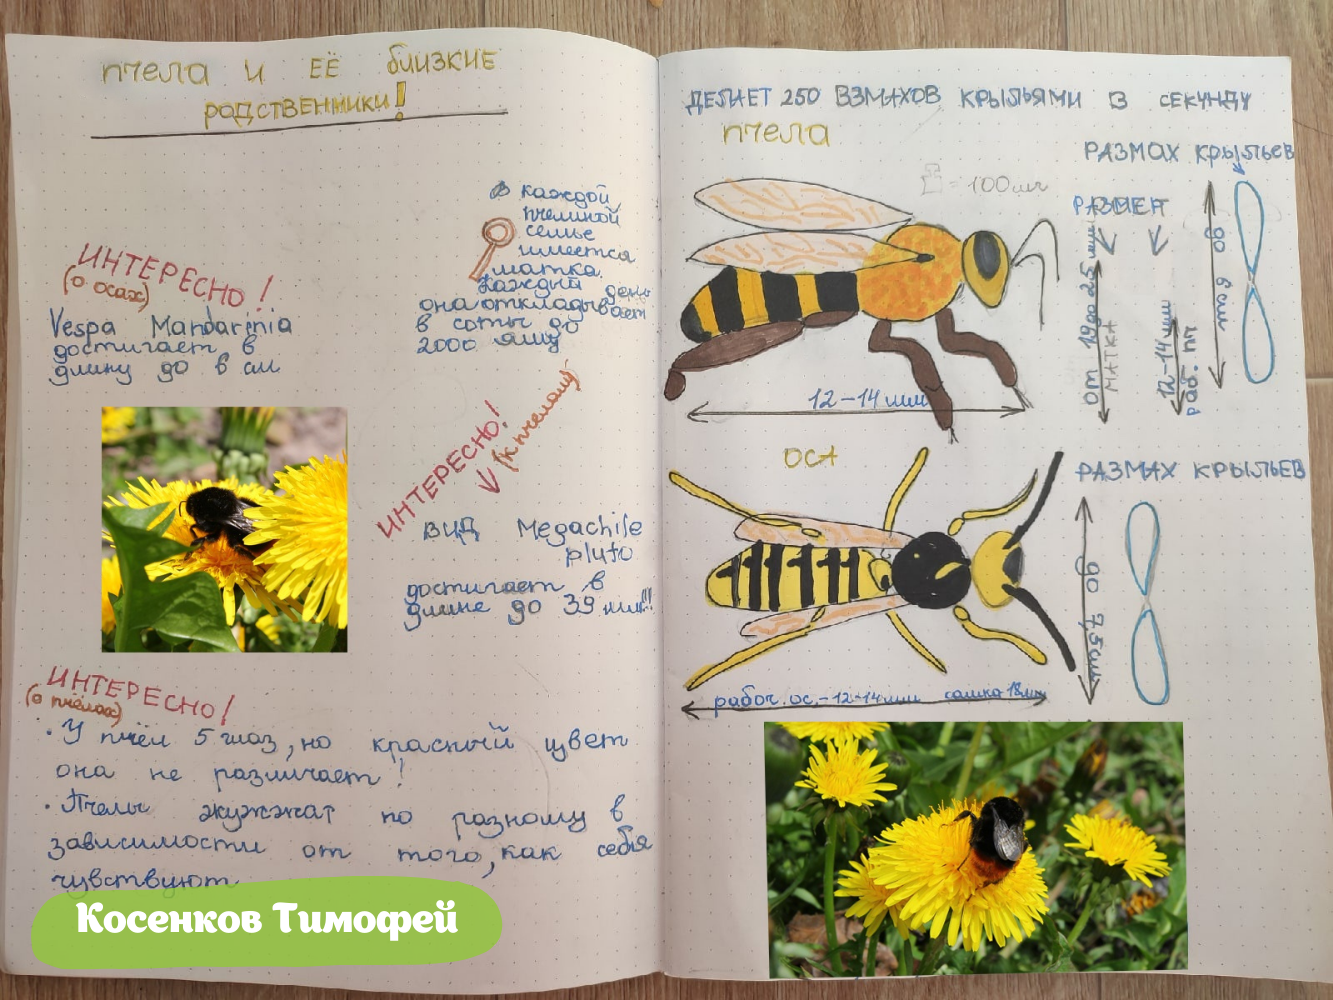 пчела и её близкие
родственники!
ИНТЕРЕСНО!
(о осах)
Vespa Mandarinia
достигает в
длину до 6 см
В каждой
пчелиной
семье
имеется
матка.
Каждый день
она откладывает
в соты до
2000 яиц
ИНТЕРЕСНО!
(к пчелам)
ВИД Megachile
pluto
достигает в
длине до 39 мм!!!
ИНТЕРЕСНО!
(о пчёлах)
• У пчёл 5 глаз, но красный цвет
она не различает!
• Пчелы жужжат по разному в
зависимости от того, как себя
чувствуют
Косенков Тимофей
ДЕЛАЕТ 250 ВЗМАХОВ КРЫЛЬЯМИ В СЕКУНДУ
пчела
= 100 мг
РАЗМАХ крыльев
РАЗМЕР
МАТКА
12-14 мм
раб. пч
12-14 мм
ОСА
РАЗМАХ КРЫЛЬЕВ
до 7,5 см
рабоч. ос. - 12-14 мм самка 18 мм